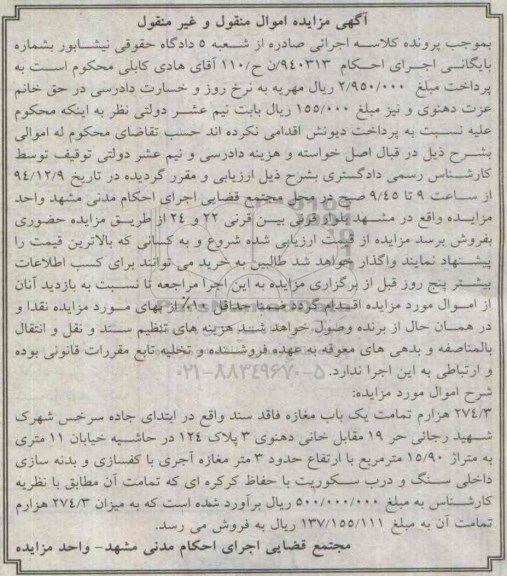 آگهی مزایده اموال منقول و غیر منقول
بموجب پرونده کلاسه اجرائی صادره از شعبه ۵ دادگاه حقوقی نیشابور بشماره
بایگانی اجرای احکام ۹۴۰۳۱۳/ن ح/۱۱۰ آقای هادی کابلی محکوم است به
پرداخت مبلغ ۲/۹۵۰/۰۰۰ ریال مهریه به نرخ روز و خسارت دادرسی در حق خانم
عزت دهنوی و نیز مبلغ ۱۵۵/۰۰۰ ریال بابت نیم عشر دولتی نظر به اینکه محکوم
علیه نسبت به پرداخت دیونش اقدامی نکرده اند حسب تقاضای محکوم له اموالی
بشرح ذیل در قبال اصل خواسته و هزینه دادرسی و نیم عشر دولتی توقیف توسط
کارشناس رسمی دادگستری بشرح ذیل ارزیابی و مقرر گردیده در تاریخ ۹۴/۱۲/۹
از ساعت ۹ تا ۹/۴۵ صبح در محل مجتمع قضایی اجرای احکام مدنی مشهد واحد
مزایده واقع در مشهد بلوار قرنی بین قرنی ۲۲ و ۲۴ از طریق مزایده حضوری
بفروش برسد مزایده از قیمت ارزیابی شده شروع و به کسانی که بالاترین قیمت را
پیشنهاد نمایند واگذار خواهد شد طالبین به خرید می توانند برای کسب اطلاعات
بیشتر پنج روز قبل از برگزاری مزایده به این اجرا مراجعه تا نسبت به بازدید آنان
از اموال مورد مزایده اقدام گردد ضمنا حداقل ۱۰٪ از بهای مورد مزایده نقدا و
در همان حال از برنده وصول خواهد شد هزینه های تنظیم سند و نقل و انتقال
بالمناصفه و بدهی های معوقه به عهده فروشنده و تخلیه تابع مقررات قانونی بوده
و ارتباطی به این اجرا ندارد.
۰۲۱-۸۸۳۴۹۶۷۰-۵
شرح اموال مورد مزایده:
۲۷۴/۳ هزارم تمامت یک باب مغازه فاقد سند واقع در ابتدای جاده سرخس شهرک
شهید رجائی حر ۱۹ مقابل خانی دهنوی ۳ پلاک ۱۲۴ در حاشیه خیابان ۱۱ متری
به متراژ ۱۵/۹۰ مترمربع با ارتفاع حدود ۳ متر مغازه آجری با کفسازی و بدنه سازی
داخلی سنگ و درب سکوریت با حفاظ کرکره ای که تمامت آن مطابق با نظریه
کارشناس به مبلغ ۵۰۰/۰۰۰/۰۰۰ ریال برآورد شده است که به میزان ۲۷۴/۳ هزارم
تمامت آن به مبلغ ۱۳۷/۱۵۵/۱۱۱ ریال به فروش می رسد.
مجتمع قضایی اجرای احکام مدنی مشهد- واحد مزایده